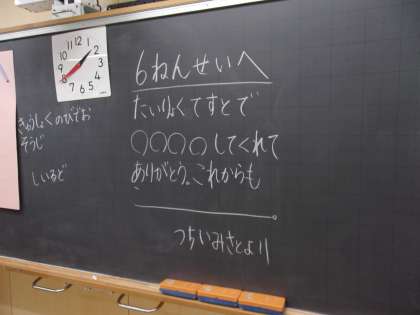 6ねんせいへ
たいりょくてすとで
○○○○してくれて
ありがとう。これからも
。
つちいみさとより
きゅうしょくのびでお
そうじ
しいるど
12
1
2
3
4
5
6
7
8
9
10
11